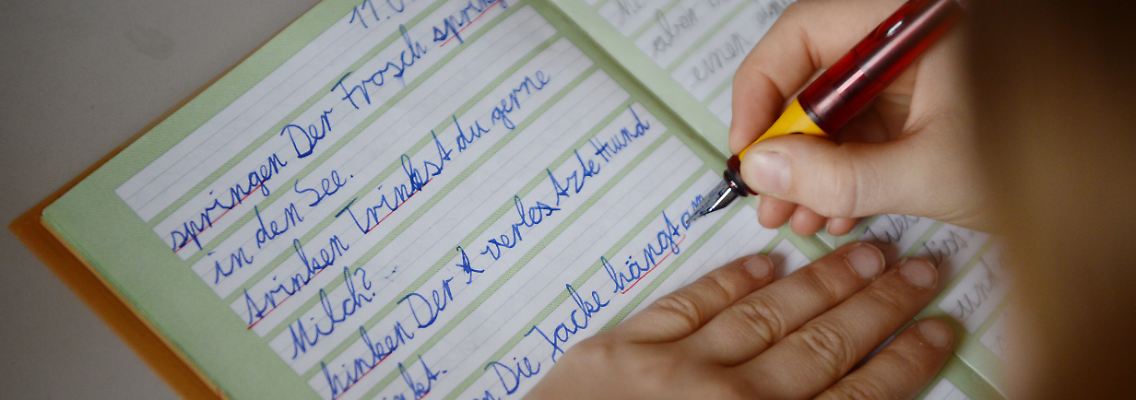 11.0
springen Der Frosch spring
in den See.
trinken Trinkst du gerne
Milch?
hinken Der Hund
inkt.
Die Jacke hängt am
aber
einen
und